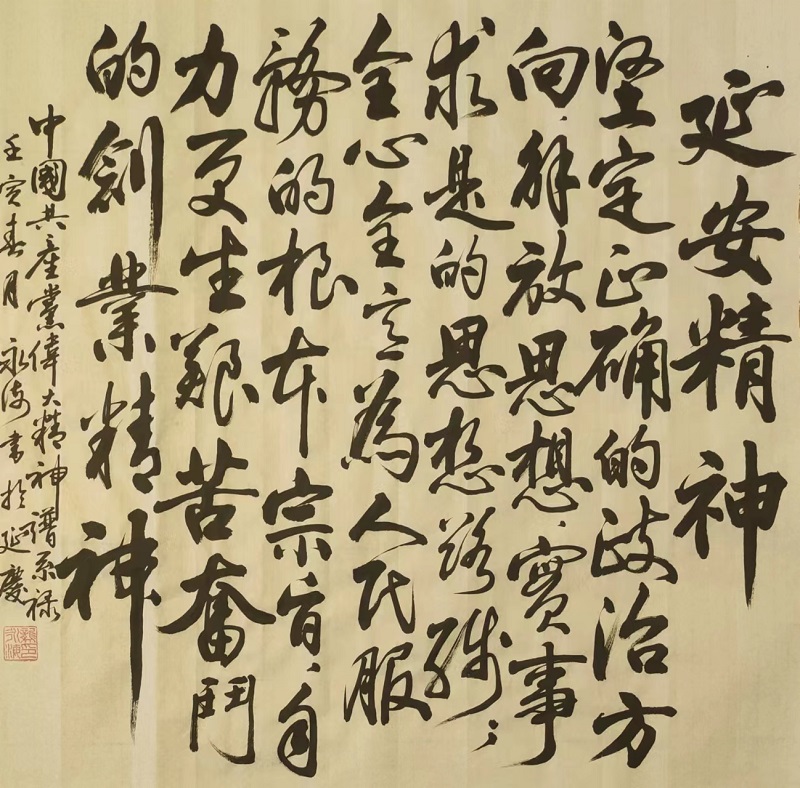 延安精神
坚定正确的政治方
向、解放思想、實事
求是的思想路線；
全心全意為人民服
務的根本宗旨、自
力更生艱苦奮鬥
的創業精神
中國共產黨偉大精神譜系錄
壬寅春月永海書於延慶